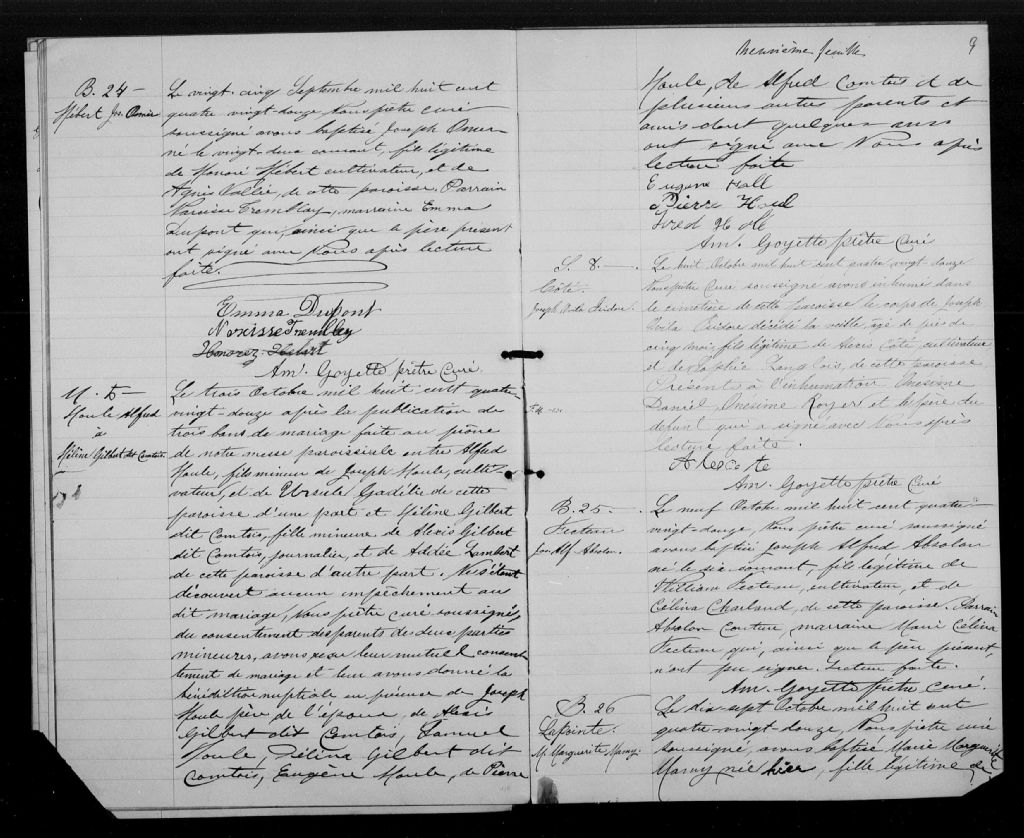 B. 24 —
Hébert Jos. Omer
Le vingt-cinq Septembre mil huit cent
quatre vingt-douze, Nous prêtre curé
soussigné avons baptisé Joseph Omer
né le vingt-deux courant, fils légitime
de Honoré Hébert cultivateur, et de
Agnès Vallée, de cette paroisse, Parrain
Narcisse Tremblay, marraine Emma
Dupont qui, ainsi que le père présent
ont signé avec Nous après lecture
faite.
Emma Dupont
Narcisse Tremblay
Honorez Hebert
Am. Goyette prêtre Curé
M. 5 —
Houle Alfred
à
Méline Gilbert dit Comtois
Le trois Octobre mil huit cent quatre
vingt douze après la publication de
trois bans de mariage faite au prône
de notre messe paroissiale entre Alfred
Houle, fils mineur de Joseph Houle, culti-
vateur, et de Ursule Gadélie de cette
paroisse d'une part et Méline Gilbert
dit Comtois, fille mineure de Alexis Gilbert
dit Comtois, journalier, et de Adélée Lambert
de cette paroisse d'autre part. Ne s'étant
découvert aucun empêchement au
dit mariage, Nous prêtre curé soussigné,
du consentement des parents des deux parties
mineures, avons reçu leur mutuel consen-
tement de mariage et leur avons donné la
bénédiction nuptiale en présence de Joseph
Houle père de l'époux, de Alexis
Gilbert dit Comtois, Samuel
Houle, Délina Gilbert dit
Comtois, Eugène Houle, de Pierre
Neuvième feuille
9
Houle, de Alfred Comtois et de
plusieurs autres parents et
amis dont quelques-uns
ont signé avec Nous après
lecture faite
Eugene Hall
Pierre Houl
Fred Holl
Am. Goyette prêtre Curé
S. 8. —
Côté.
Joseph Isidore
Le huit Octobre mil huit cent quatre vingt-douze
Nous prêtre curé soussigné avons inhumé dans
le cimetière de cette paroisse le corps de Joseph
Isidore décédé la veille, âgé de près de
cinq mois, fils légitime de Alexis Côté cultivateur
et de Sophie Langlois, de cette paroisse
Présent à l'inhumation Onésime
Daniel, Onésime Royer et le père du
défunt qui a signé avec Nous après
lecture faite.
Alex Cote
Am. Goyette prêtre Curé
B. 25 —
Fecteau
Jos. Alf. Absolon.
Le neuf Octobre mil huit cent quatre
vingt-douze, Nous prêtre curé soussigné
avons baptisé Joseph Alfred Absolon
né le six courant, fils légitime de
William Fecteau, cultivateur, et de
Célina Charland, de cette paroisse. Parrain
Absolon Couture, marraine Marie Célina
Fecteau qui, ainsi que le père présent,
n'ont pu signer. Lecture faite.
Am. Goyette prêtre curé.
B. 26
Lapointe.
M. Marguerite Mamy.
Le dix-sept Octobre mil huit cent
quatre-vingt-douze, Nous prêtre curé
soussigné, avons baptisé Marie Marguerite
Mamy née hier, fille légitime de